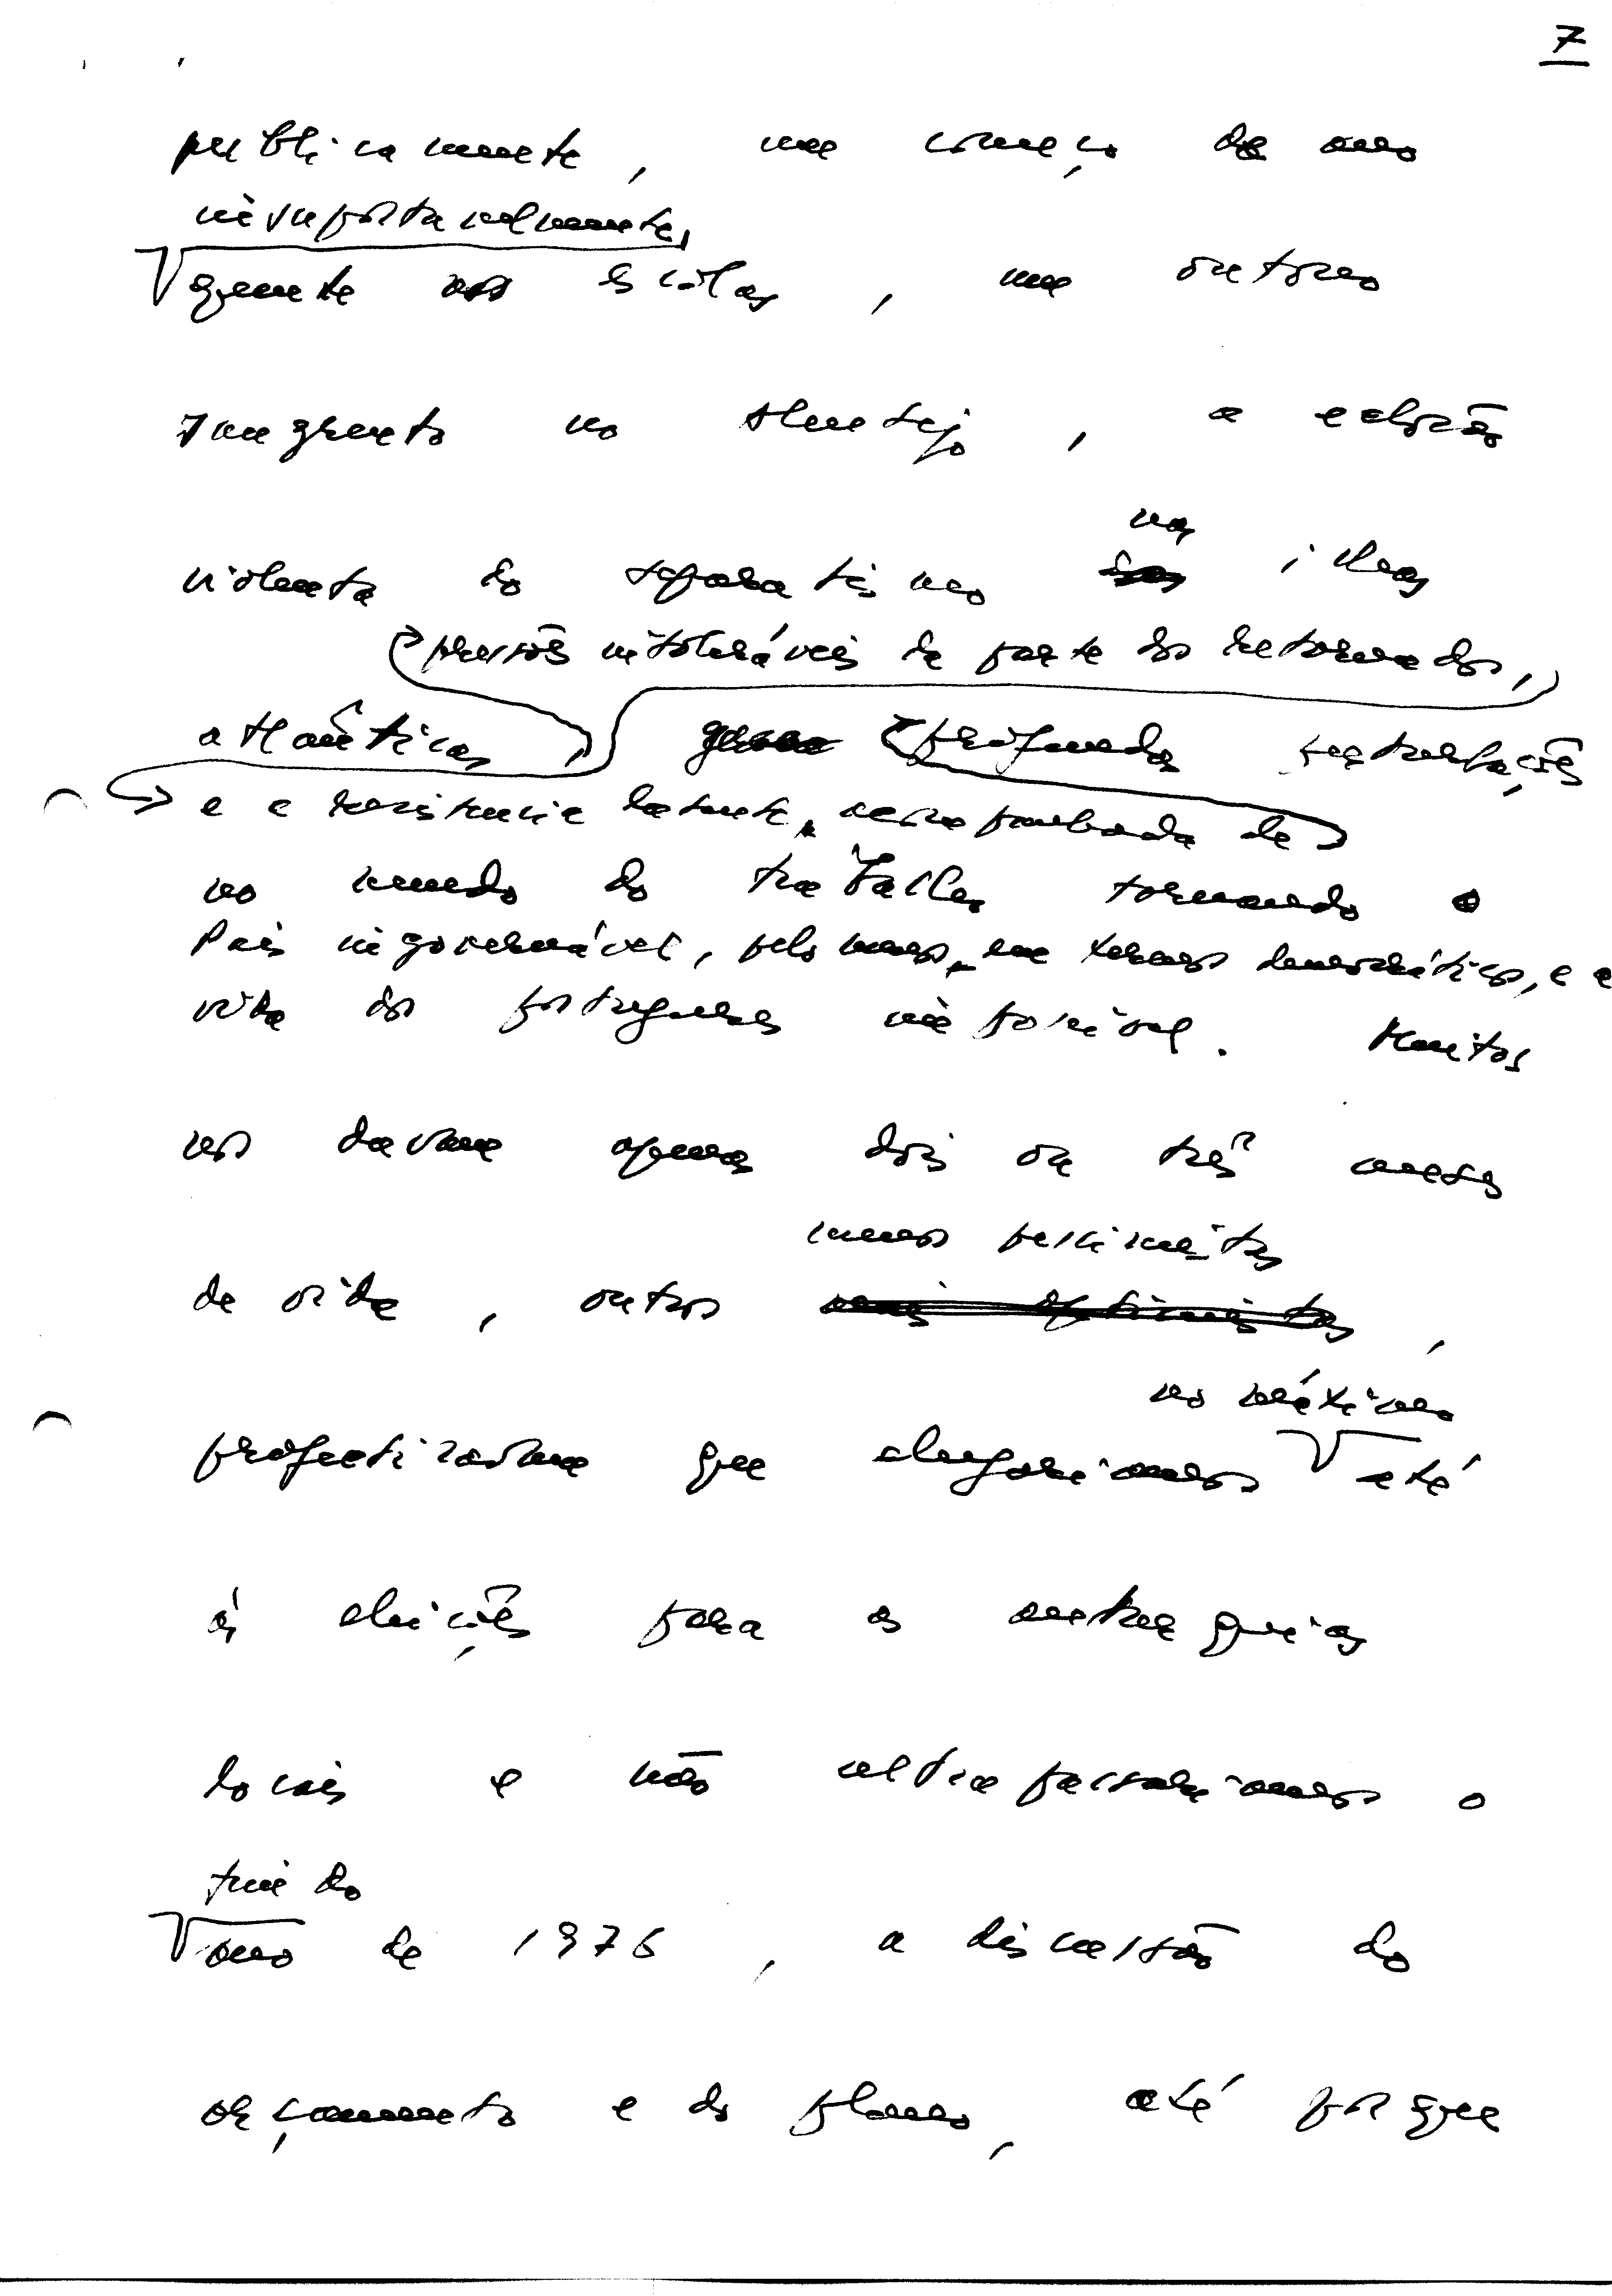 7
publicamente, um começo de ano
insuportavelmente,
quente nas escolas, um outono
sangrento no Alentejo, a eclosão
violenta do separatismo
nas
ilhas
pressões intoleráveis da parte dos retornados,
atlânticas, profundas perturbações
e a resistencia latente, acompanhada de
no mundo do trabalho tornando o
País ingovernável, pelo menos, em termos democráticos, e a
vida dos portugueses impossível. Muitos
nos davam apenas dois ou três meses
menos pessimistas
de vida, outros mais optimistas,
no máximo
profetizavam que chegaríamos até
às eleições para as autarquias
locais e não ultrapassaríamos o
fim do
ano de 1976, a discussão do
orçamento e do plano, até porque